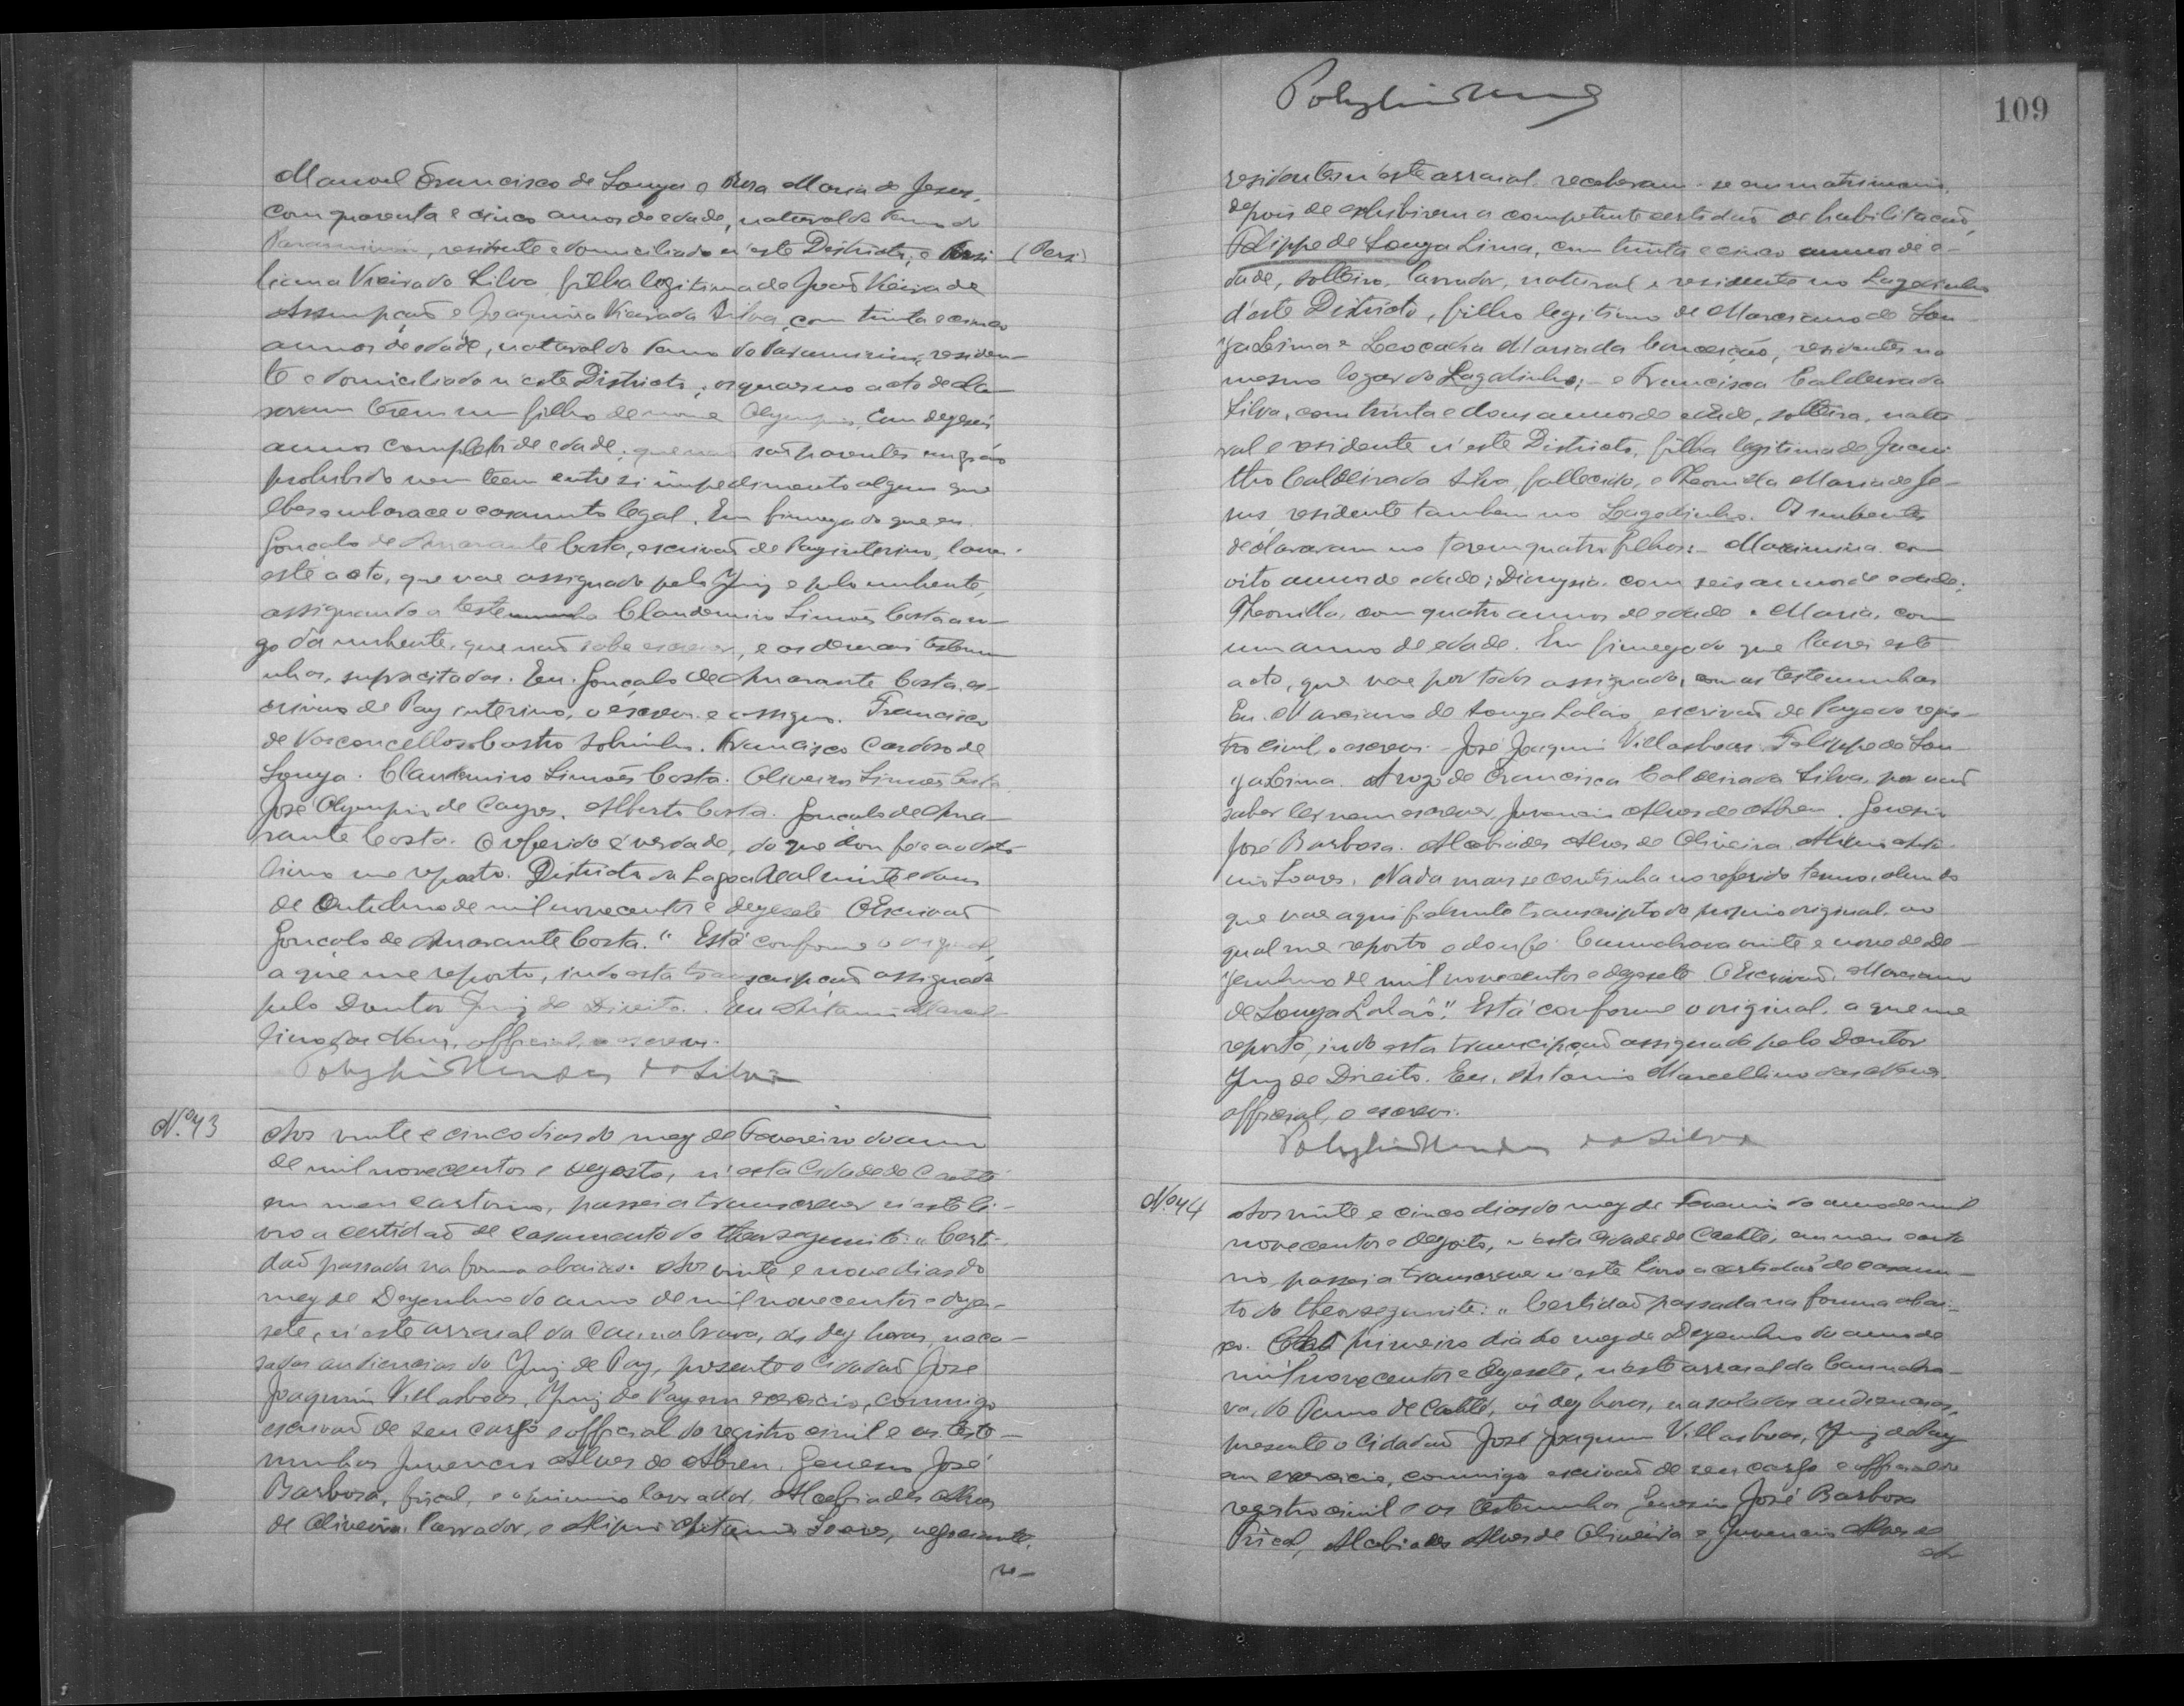 Manoel Francisco de Souza e Rosa Maria de Jesus,
com quarenta e cinco annos de edade, natural do Termo do
residente e domiciliado n'este Districto; e Persi (Persi)
liana Vieira da Silva, filha legitima de João Vieira de
Assumpção e Joaquina Vieira da Silva, com trinta e cinco
annos de edade, natural do Termo do Paramirim, residen-
te e domiciliado n'este Districto; os quaes no acto decla-
raram terem um filho de nome Olympio, com dezeseis
annos completos de edade; que não são parentes em gráo
prohibido nem teem entre si impedimento algum que
lhes embarace o casamento legal. Em firmeza do que eu
Gonçalo de Amarante Costa, escrivão de Paz interino, lavrei
este acto, que vae assignado pelo Juiz e pelo nubente,
assignando a testemunha Claudemiro Simões Costa a ro-
go da nubente, que não sabe escrever, e as demais testemu-
nhas, supracitadas. Eu, Gonçalo de Amarante Costa, es-
crivão de Paz interino, o escrevi e assigno. Francisco
de Vasconcellos Castro Sobrinho. Francisco Cardoso de
Souza. Claudemiro Simões Costa. Oliveiros Simões Costa.
José Olympio de Cayres. Alberto Costa. Gonçalo de Ama-
rante Costa. O referido é verdade, do que dou fé e ao dito
livro me reporto. Districto da Lagoa Real vinte e dous
de Outubro de mil novecentos e dezesete O Escrivão
Gonçalo de Amarante Costa." Está conforme o original,
a que me reporto, indo esta transcripção assignada
pelo Doutor Juiz de Direito. Eu Antonio Marcel-
lino das Neves, official, o escrevi.
Mendes da Silva
Nº 43
Aos vinte e cinco dias do mez de Fevereiro do anno
de mil novecentos e dezoito, n'esta Cidade de Caetité
em meu cartorio, passei a transcrever n'este li-
vro a certidão de casamento do theor seguinte: "Certi-
dão passada na forma abaixo. Aos vinte e nove dias do
mez de Dezembro do anno de mil novecentos e deze-
sete, n'este arraial da Cannabrava, ás dez horas, na ca-
sa das audiencias do Juiz de Paz, presente o Cidadão José
Joaquim Villasboas, Juiz de Paz em exercicio, commigo
escrivão de seu cargo e official do registro civil e as teste-
munhas Juvencio Alves de Abreu, Genesio José
Barbosa, fiscal, e o primeiro lavrador, Alcebiades Alves
de Oliveira, lavrador, e Alipio Antonio Soares, negociante,
re-
109
residentes n'este arraial, receberam-se em matrimonio,
depois de exhibirem a competente certidão de habilitação,
Felippe de Souza Lima, com trinta e cinco annos de e-
dade, solteiro, lavrador, natural e residente no Lagedinho
d'este Districto, filho legitimo de Marciano de Sou-
za Lima e Leocadia Maria da Conceição, residentes no
mesmo logar do Lagedinho; e Francisca Caldeira da
Silva, com trinta e dous annos de edade, solteira, natu-
ral e residente n'este Districto, filha legitima de Jacin-
tho Caldeira da Silva, fallecido, e Theonilla Maria de Je-
sus, residente tambem no Lagedinho. Os nubentes
declararam no terem quatro filhos: - Maximina, com
oito annos de edade; Dionysia, com seis annos de edade;
Theonilla, com quatro annos de edade e Maria, com
um anno de edade. Em firmeza do que lavrei este
acto, que vae por todos assignado, com as testemunhas
Eu, Marciano de Souza Lobão, escrivão de Paz e do regis-
tro civil, o escrevi. José Joaquim Villasboas. Felippe de Sou-
za Lima. A rogo de Francisca Caldeira da Silva, por não
saber ler nem escrever, Juvencio Alves de Abreu. Genesio
José Barbosa. Alcebiades Alves de Oliveira. Alipio Anto-
nio Soares. Nada mais se continha no referido termo, além do
que vae aqui fielmente transcripto do proprio original, ao
qual me reporto e dou fé. Cannabrava vinte e nove de De-
zembro de mil novecentos e dezesete. O Escrivão, Marciano
de Souza Lobão." Está conforme o original, a que me
reporto, indo esta transcripção assignada pelo Doutor
Juiz de Direito. Eu, Antonio Marcellino das Neves
official, o escrevi.
Mendes da Silva
Nº 44
Aos vinte e cinco dias do mez de Fevereiro do anno de mil
novecentos e dezoito, n'esta Cidade de Caetité, em meu carto-
rio, passei a transcrever n'este livro a certidão de casamen-
to do theor seguinte: "Certidão passada na forma abai-
xo. Ao primeiro dia do mez de Dezembro do anno de
mil novecentos e dezesete, n'este arraial da Cannabra-
va, do Termo de Caetité, ás dez horas, na sala das audiencias,
presente o Cidadão José Joaquim Villasboas, Juiz de Paz
em exercicio, commigo escrivão de seu cargo e official do
registro civil e as testemunhas Genesio José Barbosa
Fiscal, Alcebiades Alves de Oliveira e Juvencio Alves de
Ab